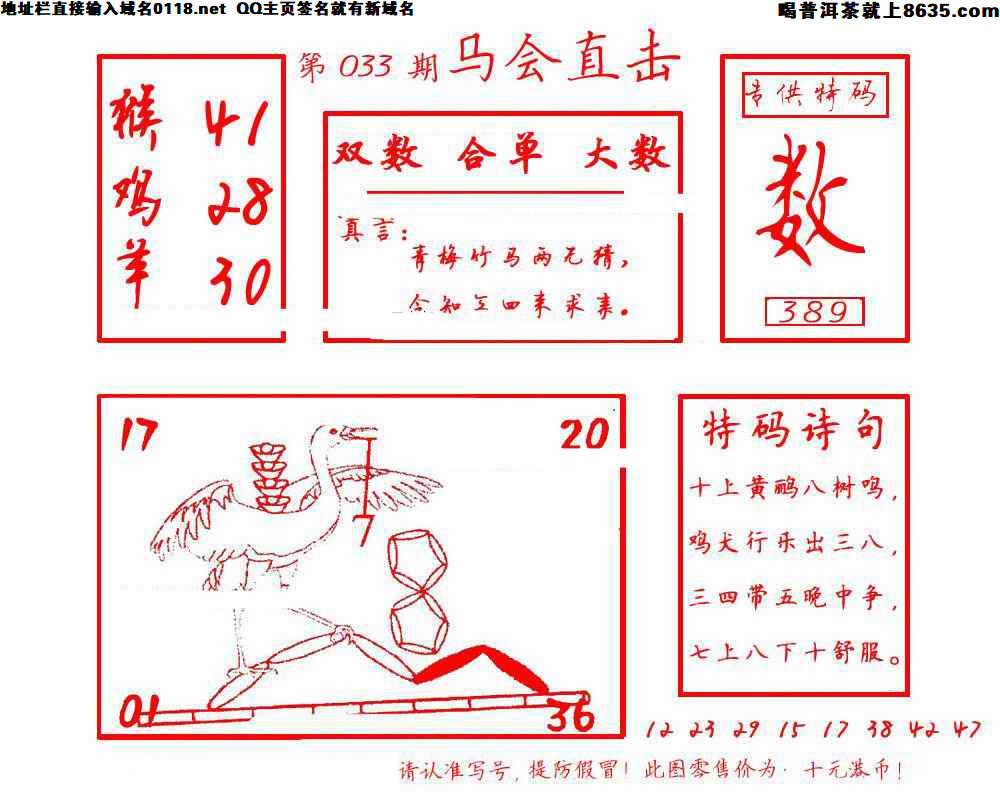 地址栏直接输入域名0118.net QQ主页签名就有新域名
喝普洱茶就上8635.com
第 033 期 马会直击
猴 41
鸡 28
羊 30
双数 合单 大数
真言：
青梅竹马两无猜，
四来求
专供特码
数
389
17
20
7
01
36
特码诗句
十上黄鹂八树鸣，
鸡犬行乐出三八，
三四带五晚中争，
七上八下十舒服。
12 23 29 15 17 38 42 47
请认准写号，提防假冒！此图零售价为·十元港币！